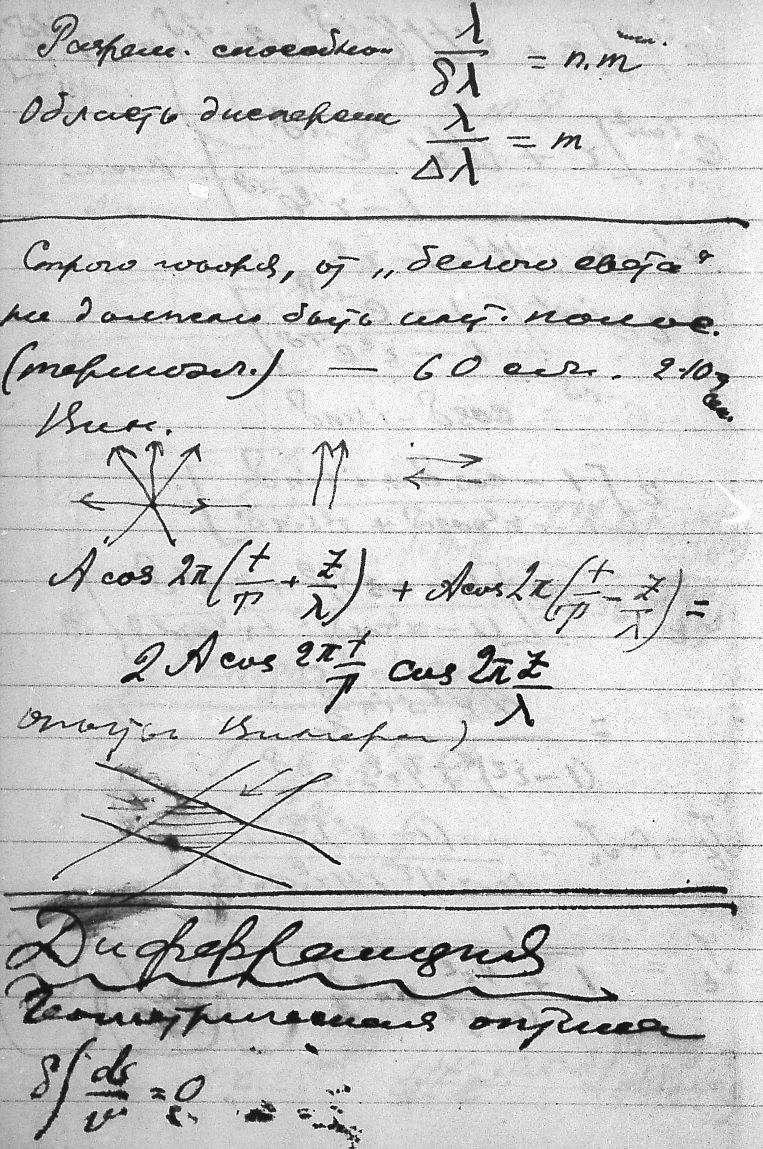 Разреш. способност λ/δλ = n.m
Область дисперсии λ/Δλ = m
Строго говоря, от „белого света“
не должны быть инт. полос.
(термоэл.) — 60 см. 2·10
A cos 2π(t/T + z/λ) + A cos 2π(t/T − z/λ) =
2 A cos 2π t/T cos 2π z/λ
опыты Винера)
Дифракция
Геометрическая оптика
δ∫ ds/v = 0